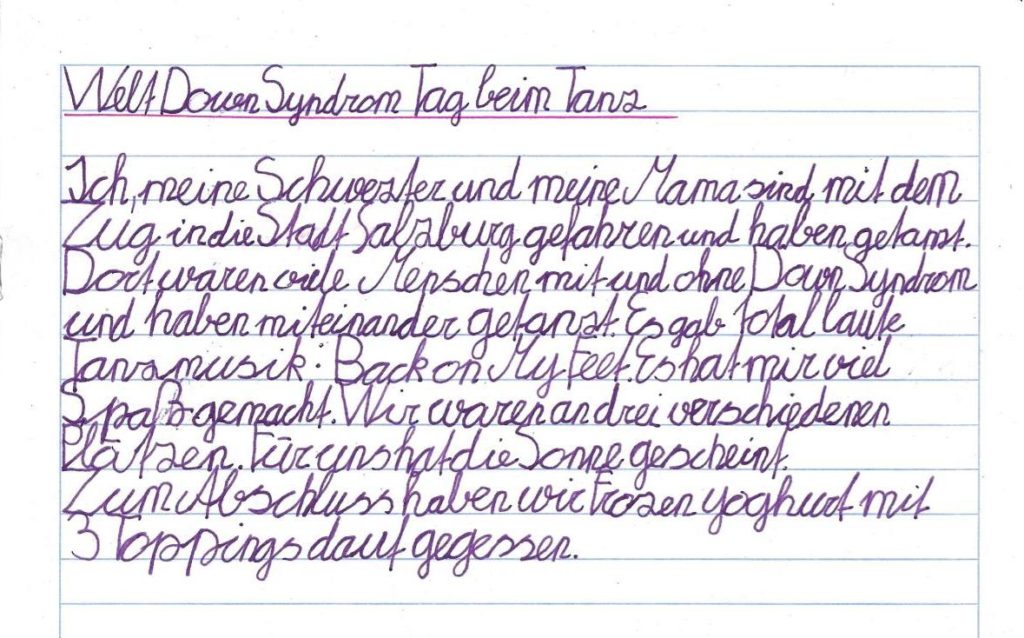 Welt Down Syndrom Tag beim Tanz
Ich, meine Schwester und meine Mama sind mit dem
Zug in die Stadt Salzburg gefahren und haben getanzt.
Dort waren viele Menschen mit und ohne Down Syndrom
und haben miteinander getanzt. Es gab total laute
Tanzmusik: Back on My Feet. Es hat mir viel
Spaß gemacht. Wir waren an drei verschiedenen
Plätzen. Für uns hat die Sonne gescheint.
Zum Abschluss haben wir Frozen yoghurt mit
3 Toppings dauf gegessen.